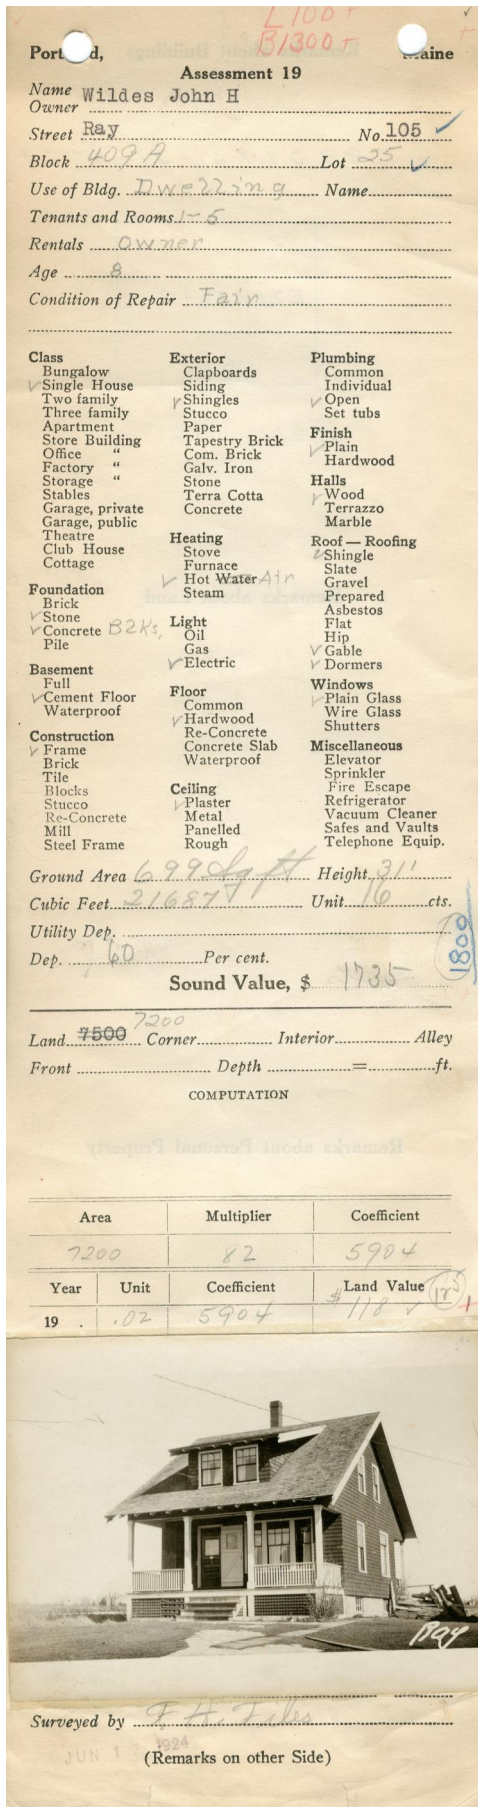 L 100 +
B 1300 +
Portland, Maine
Assessment 19
Name
Owner Wildes John H
Street Ray No. 105 ✓
Block 409 A Lot 25 ✓
Use of Bldg. Dwelling Name
Tenants and Rooms 1-5
Rentals Owner
Age 8
Condition of Repair Fair
Class
Bungalow
✓ Single House
Two family
Three family
Apartment
Store Building
Office "
Factory "
Storage "
Stables
Garage, private
Garage, public
Theatre
Club House
Cottage
Foundation
Brick
✓ Stone
✓ Concrete Blks.
Pile
Basement
Full
✓ Cement Floor
Waterproof
Construction
✓ Frame
Brick
Tile
Blocks
Stucco
Re-Concrete
Mill
Steel Frame
Exterior
Clapboards
Siding
✓ Shingles
Stucco
Paper
Tapestry Brick
Com. Brick
Galv. Iron
Stone
Terra Cotta
Concrete
Heating
Stove
Furnace
✓ Hot Water Air
Steam
Light
Oil
Gas
✓ Electric
Floor
Common
✓ Hardwood
Re-Concrete
Concrete Slab
Waterproof
Ceiling
✓ Plaster
Metal
Panelled
Rough
Plumbing
Common
Individual
✓ Open
Set tubs
Finish
✓ Plain
Hardwood
Halls
✓ Wood
Terrazzo
Marble
Roof — Roofing
✓ Shingle
Slate
Gravel
Prepared
Asbestos
Flat
Hip
✓ Gable
✓ Dormers
Windows
✓ Plain Glass
Wire Glass
Shutters
Miscellaneous
Elevator
Sprinkler
Fire Escape
Refrigerator
Vacuum Cleaner
Safes and Vaults
Telephone Equip.
Ground Area 699 Sq ft Height 31'
Cubic Feet 21687 Unit 16 cts.
Utility Dep.
Dep. 60 Per cent.
1800
Sound Value, $ 1735
7200
Land 7500 Corner Interior Alley
Front Depth = ft.
COMPUTATION
Area Multiplier Coefficient
7200 82 5904
Year Unit Coefficient Land Value 125
19 . .02 5904 $ 118 ✓ +
Ray
Surveyed by F. H. Files
JUN 17 1924
(Remarks on other Side)